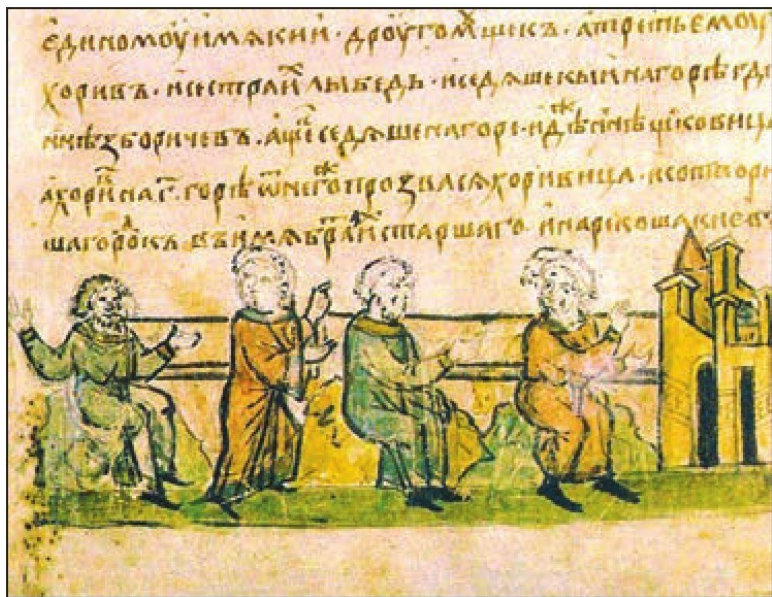 единомоу имѧ кии · дроугомꙋ щекъ · а третьемоу
хоривъ · и сестра и҆ лыбедь · и седѧше кыи на горѣ гдѣ
ннѣ зборичевъ · а щекъ седѧше на горе · идѣже ннѣ щековица
а хорив на г҃ горѣ ѿ него прозвасѧ хоривица · и сотвори
ша городокъ въ имѧ брата и҆ старшаго и нарекоша киевъ